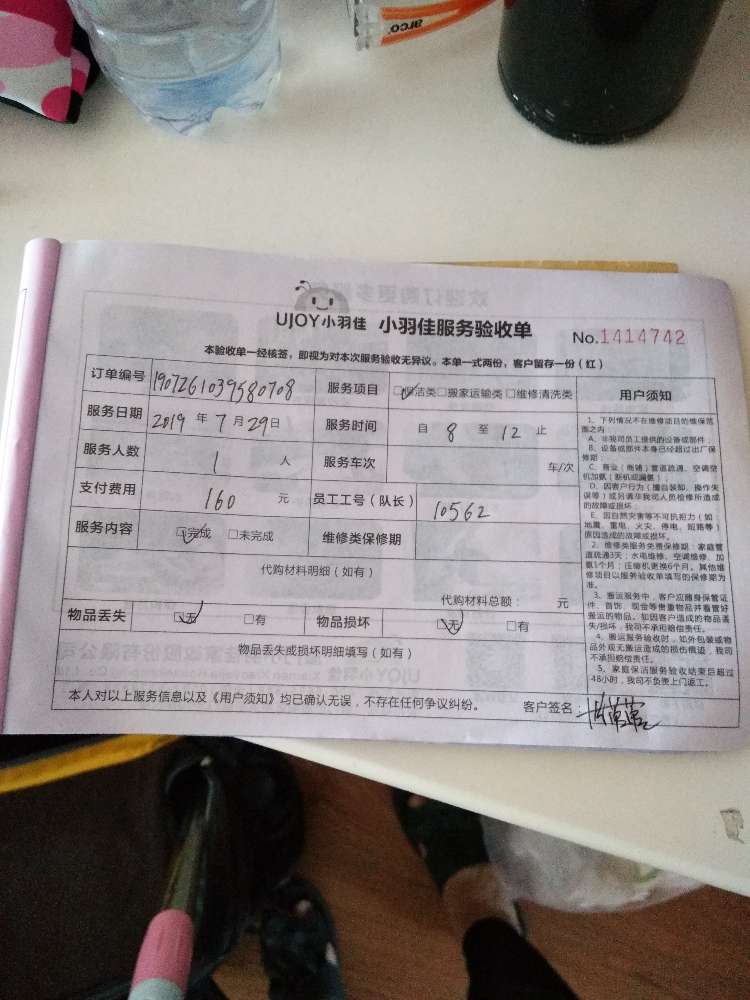 arco
UJOY小羽佳 小羽佳服务验收单
No.1414742
本验收单一经核签，即视为对本次服务验收无异议。本单一式两份，客户留存一份（红）
订单编号 1907261039580708 服务项目 □保洁类□搬家运输类□维修清洗类
服务日期 2019 年 7 月 29 日 服务时间 自 8 至 12 止
服务人数 1 人 服务车次 车/次
支付费用 160 元 员工工号（队长） 10562
服务内容 □完成 □未完成 维修类保修期
代购材料明细（如有）
代购材料总额： 元
物品丢失 □无 □有 物品损坏 □无 □有
物品丢失或损坏明细填写（如有）
本人对以上服务信息以及《用户须知》均已确认无误，不存在任何争议纠纷。 客户签名：
用户须知
1、下列情况不在维修项目的维保范
围之内
A、非我司员工提供的设备或部件
B、设备或部件本身已经超过出厂保
修期
C、商业（商铺）管道疏通、空调空
机加氨（断机或漏氨）
D、因客户行为（擅自装卸、操作失
误等）或另请非我司人员检修所造成
的故障或损坏
E、因自然灾害等不可抗拒力（如
地震、雷电、火灾、停电、短路等）
原因造成的故障或损坏。
2、维修类服务免费保修期：家庭管
道疏通3天；水电维修、空调维修、加
氨1个月；压缩机更换6个月。其他维
修项目以服务验收单填写的保修期为
准。
3、搬运服务中，客户应随身保管证
件、首饰、现金等贵重物品并看管好
搬运的物品。如因客户造成的物品丢
失/损坏，我司不承担赔偿责任。
4、搬运服务验收时，如外包装或物
品外观无搬运造成的损伤痕迹，我司
不承担赔偿责任。
5、家庭保洁服务验收结束后超过
48小时，我司不负责上门返工。